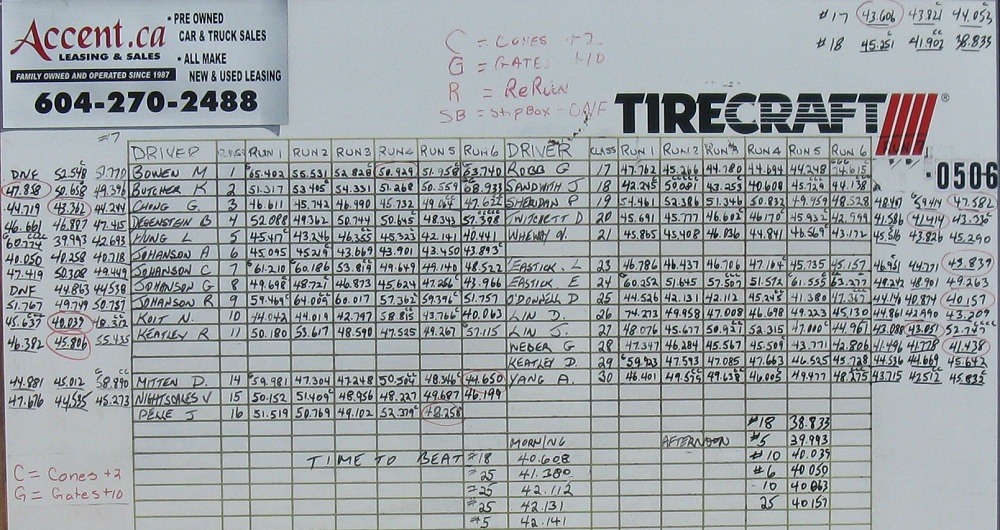 Accent.ca
LEASING & SALES
FAMILY OWNED AND OPERATED SINCE 1987
• PRE OWNED
CAR & TRUCK SALES
• ALL MAKE
NEW & USED LEASING
604-270-2488
C = CONES +2
G = GATES +10
R = ReRun
SB = StopBox - DNF
#17 43.606 43.821 44.053
#18 45.251 41.902 38.833
TIRECRAFT
0506
#7
DRIVER CLASS RUN 1 RUN 2 RUN 3 RUN 4 RUN 5 RUN 6 DRIVER CLASS RUN 1 RUN 2 RUN 3 RUN 4 RUN 5 RUN 6
DNF 52.548 BOWEN M 1 65.402 56.531 52.828 50.929 51.958 ROBB G 17 47.762 45.266 44.780 44.694 44.248
47.828 50.658 BUTCHER K 2 51.317 54.331 51.268 50.559 SANDWITH J 18 42.245 43.253 40.608 45.729 44.138
44.719 43.362 CHONG G. 3 46.611 45.742 46.990 45.732 P 19 54.461 52.386 51.346 50.832 49.959 47.582
46.661 46.887 47.415 DEGENSTEIN B 4 52.088 49.362 50.744 50.645 48.343 20 45.691 45.777 46.602 46.170 45.932 42.999
39.993 42.693 HUNG L 5 43.246 46.355 45.323 42.141 40.441 21 45.865 45.408 46.036 44.841 46.569 43.172 43.826 45.290
40.050 40.258 40.718 JOHANSON A 6 45.095 45.219 43.669 43.901 43.450 43.893
47.419 50.308 49.449 JOHANSON C 7 61.210 60.186 53.819 49.649 49.140 48.522 EASTICK. L 23 46.786 46.437 46.706 47.164 45.735 45.157 43.839
DNF 44.863 44.538 JOHANSON G 8 49.698 48.721 46.873 45.624 47.266 43.966 EASTICK E 24 60.252 51.645 57.507 51.572 61.555 48.242 48.901 49.263
51.767 49.749 50.757 JOHANSON R 9 59.469 64.002 60.017 57.362 59.396 51.757 O'DONNELL D 25 44.526 42.131 42.112 45.245 41.380 40.874 40.157
45.637 40.039 KOIT N. 10 44.042 44.019 42.797 58.815 43.766 40.063 LIN D. 26 74.273 49.958 47.008 46.698 49.223 45.130 42.990 43.209
46.382 45.806 55.435 KEATLEY R 11 50.180 53.617 48.590 47.525 49.267 57.115 LIN J. 27 48.076 45.677 50.929 52.315 47.000 44.961 43.088 43.051
WEBER G 28 47.347 46.284 45.567 45.509 43.771 42.806 41.438
KEATLEY D. 29 47.593 47.085 47.663 46.525 45.728 44.536 44.669 45.642
44.881 45.012 58.890 MITTEN D. 14 59.981 47.304 47.248 50.504 48.346 44.650 YANG A. 30 46.401 49.575 49.638 46.005 49.477 48.275 43.715 42.512 45.832
47.676 44.595 45.273 NIGHTSCALES V 15 50.152 51.409 48.956 48.227 49.687 46.199
PELLE J 16 51.519 50.769 49.102 52.379 48.258
#18 38.833
MORNING AFTERNOON #5 39.993
TIME TO BEAT #18 40.608 #10 40.039
#25 41.380 #6 40.050
#25 42.112 10 40.063
#25 42.131 25 40.157
#5 42.141
C = Cones +2
G = Gates +10